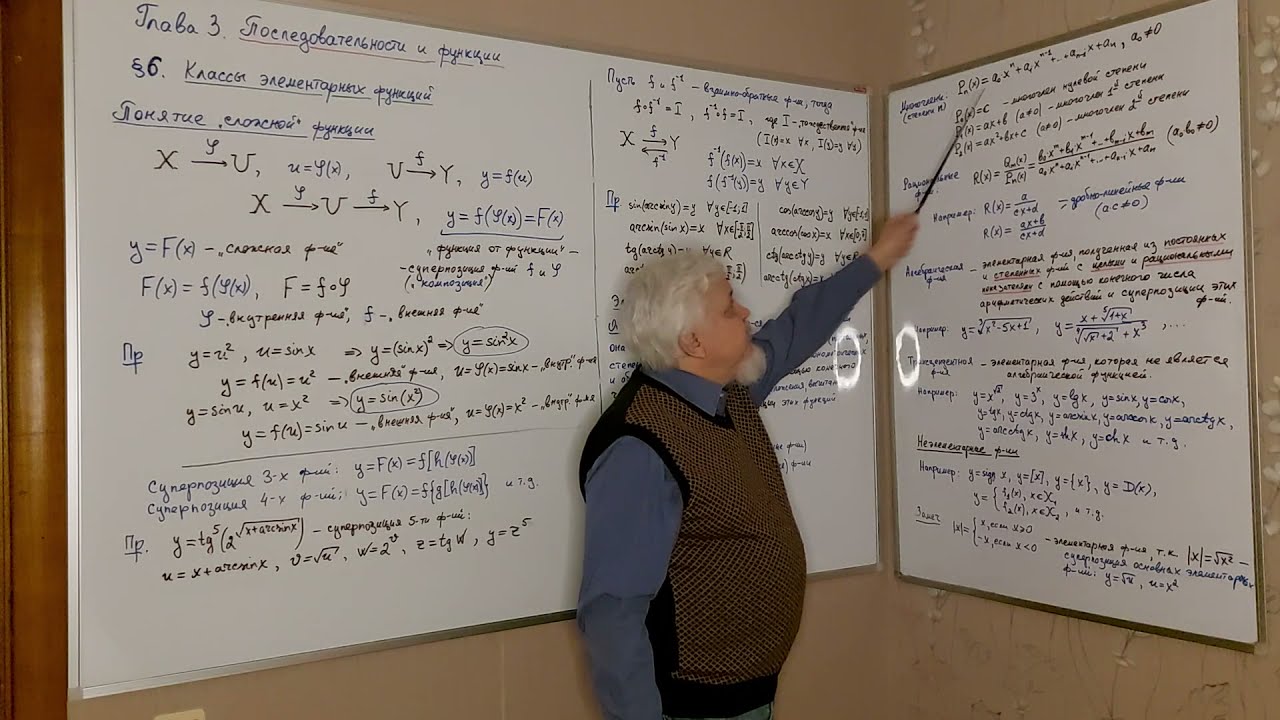 Глава 3. Последовательности и функции
§6. Классы элементарных функций
Понятие „сложной" функции
X →φ U, u=φ(x), U →f Y, y=f(u)
X →φ U →f Y, y=f(φ(x))=F(x)
y=F(x) – „сложная ф-ия"
„функция от функции" –
– суперпозиция ф-ий f и φ
(„композиция")
F(x)=f(φ(x)), F=f∘φ
φ – „внутренняя ф-ия", f – „внешняя ф-ия"
Пр y=u², u=sin x ⇒ y=(sin x)² ⇒ y=sin²x
y=f(u)=u² – „внешняя" ф-ия, u=φ(x)=sin x – „внутр" ф-ия
y=sin u, u=x² ⇒ y=sin(x²)
y=f(u)=sin u – „внешняя ф-ия", u=φ(x)=x² – „внутр" ф-ия
Суперпозиция 3-х ф-ий: y=F(x)=f[h(φ(x))]
Суперпозиция 4-х ф-ий: y=F(x)=f{g[h(φ(x))]} и т.д.
Пр. y=tg⁵(2^√(x+arcsin x)) – суперпозиция 5-ти ф-ий:
u=x+arcsin x, v=√u, w=2^v, z=tg w, y=z⁵
Пусть f и f⁻¹ – взаимно-обратные ф-ии, тогда
f∘f⁻¹=I, f⁻¹∘f=I, где I – „тождественная" ф-ия
X ⇄ Y (f, f⁻¹) (I(x)=x ∀x, I(y)=y ∀y)
f⁻¹(f(x))=x ∀x∈X
f(f⁻¹(y))=y ∀y∈Y
Пр sin(arcsin y)=y ∀y∈[-1;1] cos(arccos y)=y ∀y∈[-1;
arcsin(sin x)=x ∀x∈[-π/2;π/2] arccos(cos x)=x ∀x∈[0,
tg(arctg y)= ∀y∈R ctg(arcctg y)=y ∀y∈R
arcctg(ctg x)=x
Многочлены: Pₙ(x)=a₀xⁿ+a₁xⁿ⁻¹+...+aₙ₋₁x+aₙ, a₀≠0
(степени n)
P₀(x)=c – многочлен нулевой степени
P₁(x)=ax+b (a≠0) – многочлен 1ой степени
P₂(x)=ax²+bx+c (a≠0) – многочлен 2ой степени
Рациональные ф-ии: R(x)=Qₘ(x)/Pₙ(x)=(b₀xᵐ+b₁xᵐ⁻¹+...+bₘ₋₁x+bₘ)/(a₀xⁿ+a₁xⁿ⁻¹+...+aₙ₋₁x+aₙ) (a₀b₀≠0)
Например: R(x)=a/(cx+d)
R(x)=(ax+b)/(cx+d) – дробно-линейные ф-ии (a·c≠0)
Алгебраическая ф-ия – элементарная ф-ия, полученная из постоянных
и степенных ф-ий с целыми и рациональными
показателями с помощью конечного числа
арифметических действий и суперпозиции этих
ф-ий.
Трансцендентная ф-ия – элементарная ф-ия, которая не является
алгебраической функцией.
Например: y=x^√2, y=3ˣ, y=lg x, y=sin x, y=cos x,
y=tg x, y=ctg x, y=arcsin x, y=arccos x, y=arctg x,
y=arcctg x, y=sh x, y=ch x и т.д.
Неэлементарные ф-ии
Например: y=sign x, y=[x], y={x}, y=D(x),
y={f₁(x), x∈X₁ f₂(x), x∈X₂, и т.д.
Замеч |x|={x, если x≥0 -x, если x<0 – элементарная ф-ия, т.к. |x|=√x² –
суперпозиция основных элементарных
ф-ий: y=√u, u=x²